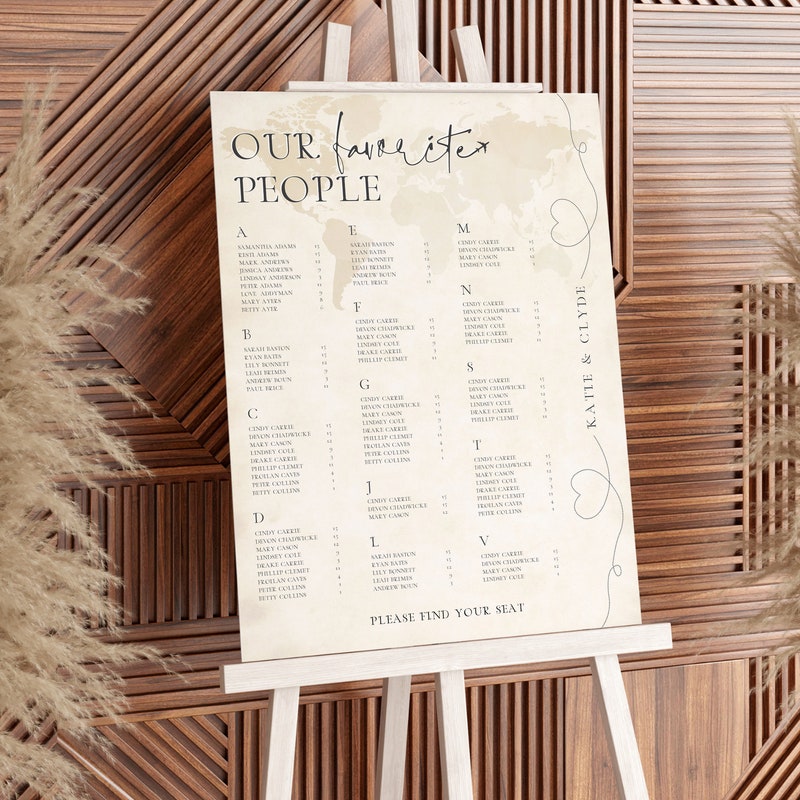 OUR favorite
PEOPLE
A
SAMANTHA ADAMS 15
RISTI ADAMS 15
MARK ANDREWS 12
JESSICA ANDREWS 9
LINDSAY ANDERSON 3
PETER ADAMS 11
LOVE ADDYMAN 9
MARY AYERS 8
BETTY AYER 6
B
SARAH BASTON 15
RYAN BATES 15
LILY BONNETT 12
LEAH BRIMES 9
ANDREW BOUN 3
PAUL BRICE 11
C
CINDY CARRIE 15
DEVON CHADWICKE 15
MARY CASON 12
LINDSEY COLE 9
DRAKE CARRIE 3
PHILLIP CLEMET 11
FROILAN CAVES 4
PETER COLLINS 1
BETTY COLLINS 1
D
CINDY CARRIE 15
DEVON CHADWICKE 15
MARY CASON 12
LINDSEY COLE 9
DRAKE CARRIE 3
PHILLIP CLEMET 11
FROILAN CAVES 4
PETER COLLINS 1
BETTY COLLINS 1
E
SARAH BASTON 15
RYAN BATES 15
LILY BONNETT 12
LEAH BRIMES 9
ANDREW BOUN 3
PAUL BRICE 11
F
CINDY CARRIE 15
DEVON CHADWICKE 15
MARY CASON 12
LINDSEY COLE 9
DRAKE CARRIE 3
PHILLIP CLEMET 11
G
CINDY CARRIE 15
DEVON CHADWICKE 15
MARY CASON 12
LINDSEY COLE 9
DRAKE CARRIE 3
PHILLIP CLEMET 11
FROILAN CAVES 4
PETER COLLINS 1
BETTY COLLINS 1
J
CINDY CARRIE 15
DEVON CHADWICKE 15
MARY CASON 12
L
SARAH BASTON 15
RYAN BATES 15
LILY BONNETT 12
LEAH BRIMES 9
ANDREW BOUN 1
M
CINDY CARRIE 15
DEVON CHADWICKE 15
MARY CASON 12
LINDSEY COLE 9
N
CINDY CARRIE 15
DEVON CHADWICKE 15
MARY CASON 12
LINDSEY COLE 9
DRAKE CARRIE 3
PHILLIP CLEMET 11
S
CINDY CARRIE 15
DEVON CHADWICKE 15
MARY CASON 12
LINDSEY COLE 9
DRAKE CARRIE 3
PHILLIP CLEMET 11
T
CINDY CARRIE 15
DEVON CHADWICKE 15
MARY CASON 12
LINDSEY COLE 9
DRAKE CARRIE 3
PHILLIP CLEMET 11
FROILAN CAVES 4
PETER COLLINS 1
V
CINDY CARRIE 15
DEVON CHADWICKE 15
MARY CASON 12
LINDSEY COLE 1
KATIE & CLYDE
PLEASE FIND YOUR SEAT